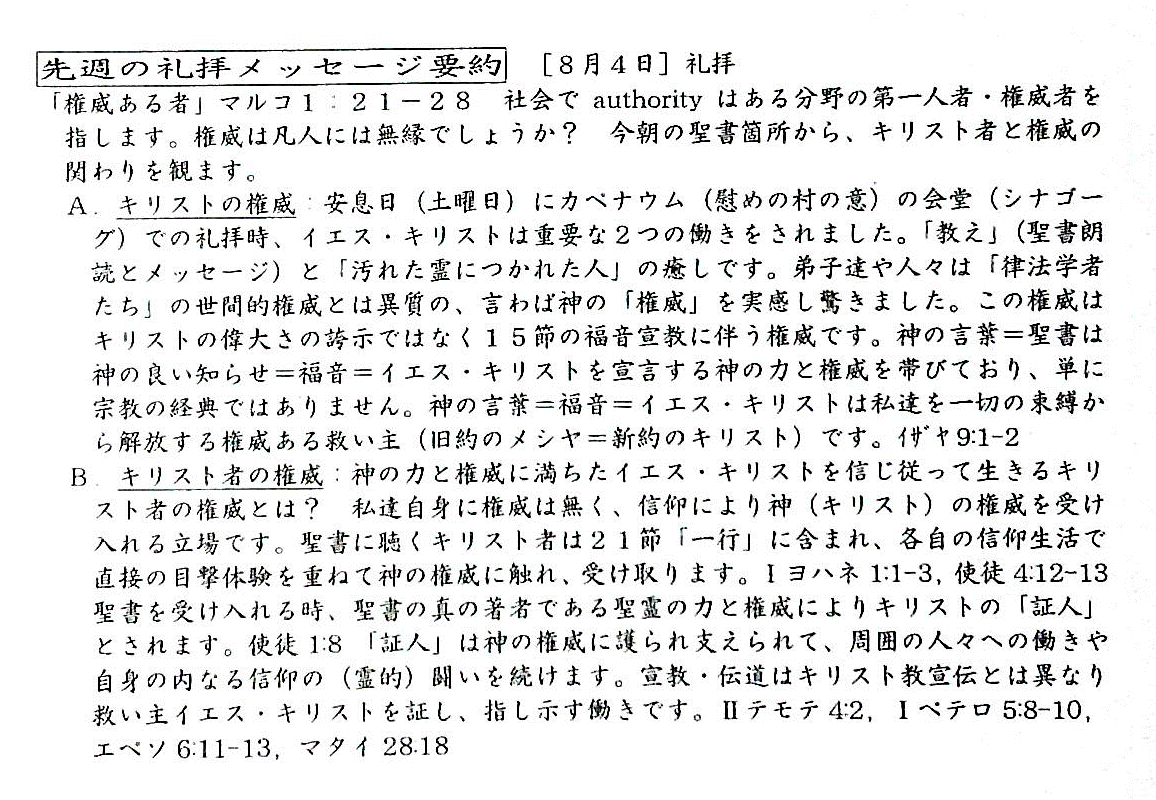 先週の礼拝メッセージ要約 [8月4日] 礼拝
「権威ある者」マルコ1:21-28 社会で authority はある分野の第一人者・権威者を
指します。権威は凡人には無縁でしょうか? 今朝の聖書箇所から、キリスト者と権威の
関わりを観ます。
A. キリストの権威:安息日(土曜日)にカペナウム(慰めの村の意)の会堂(シナゴー
グ)での礼拝時、イエス・キリストは重要な2つの働きをされました。「教え」(聖書朗
読とメッセージ)と「汚れた霊につかれた人」の癒しです。弟子達や人々は「律法学者
たち」の世間的権威とは異質の、言わば神の「権威」を実感し驚きました。この権威は
キリストの偉大さの誇示ではなく15節の福音宣教に伴う権威です。神の言葉=聖書は
神の良い知らせ=福音=イエス・キリストを宣言する神の力と権威を帯びており、単に
宗教の経典ではありません。神の言葉=福音=イエス・キリストは私達を一切の束縛か
ら解放する権威ある救い主(旧約のメシヤ=新約のキリスト)です。イザヤ9:1-2
B. キリスト者の権威:神の力と権威に満ちたイエス・キリストを信じ従って生きるキリ
スト者の権威とは? 私達自身に権威は無く、信仰により神(キリスト)の権威を受け
入れる立場です。聖書に聴くキリスト者は21節「一行」に含まれ、各自の信仰生活で
直接の目撃体験を重ねて神の権威に触れ、受け取ります。Ⅰヨハネ 1:1-3, 使徒 4:12-13
聖書を受け入れる時、聖書の真の著者である聖霊の力と権威によりキリストの「証人」
とされます。使徒 1:8 「証人」は神の権威に護られ支えられて、周囲の人々への働きや
自身の内なる信仰の(霊的)闘いを続けます。宣教・伝道はキリスト教宣伝とは異なり
救い主イエス・キリストを証し、指し示す働きです。Ⅱテモテ 4:2, Ⅰペテロ 5:8-10,
エペソ 6:11-13, マタイ 28:18